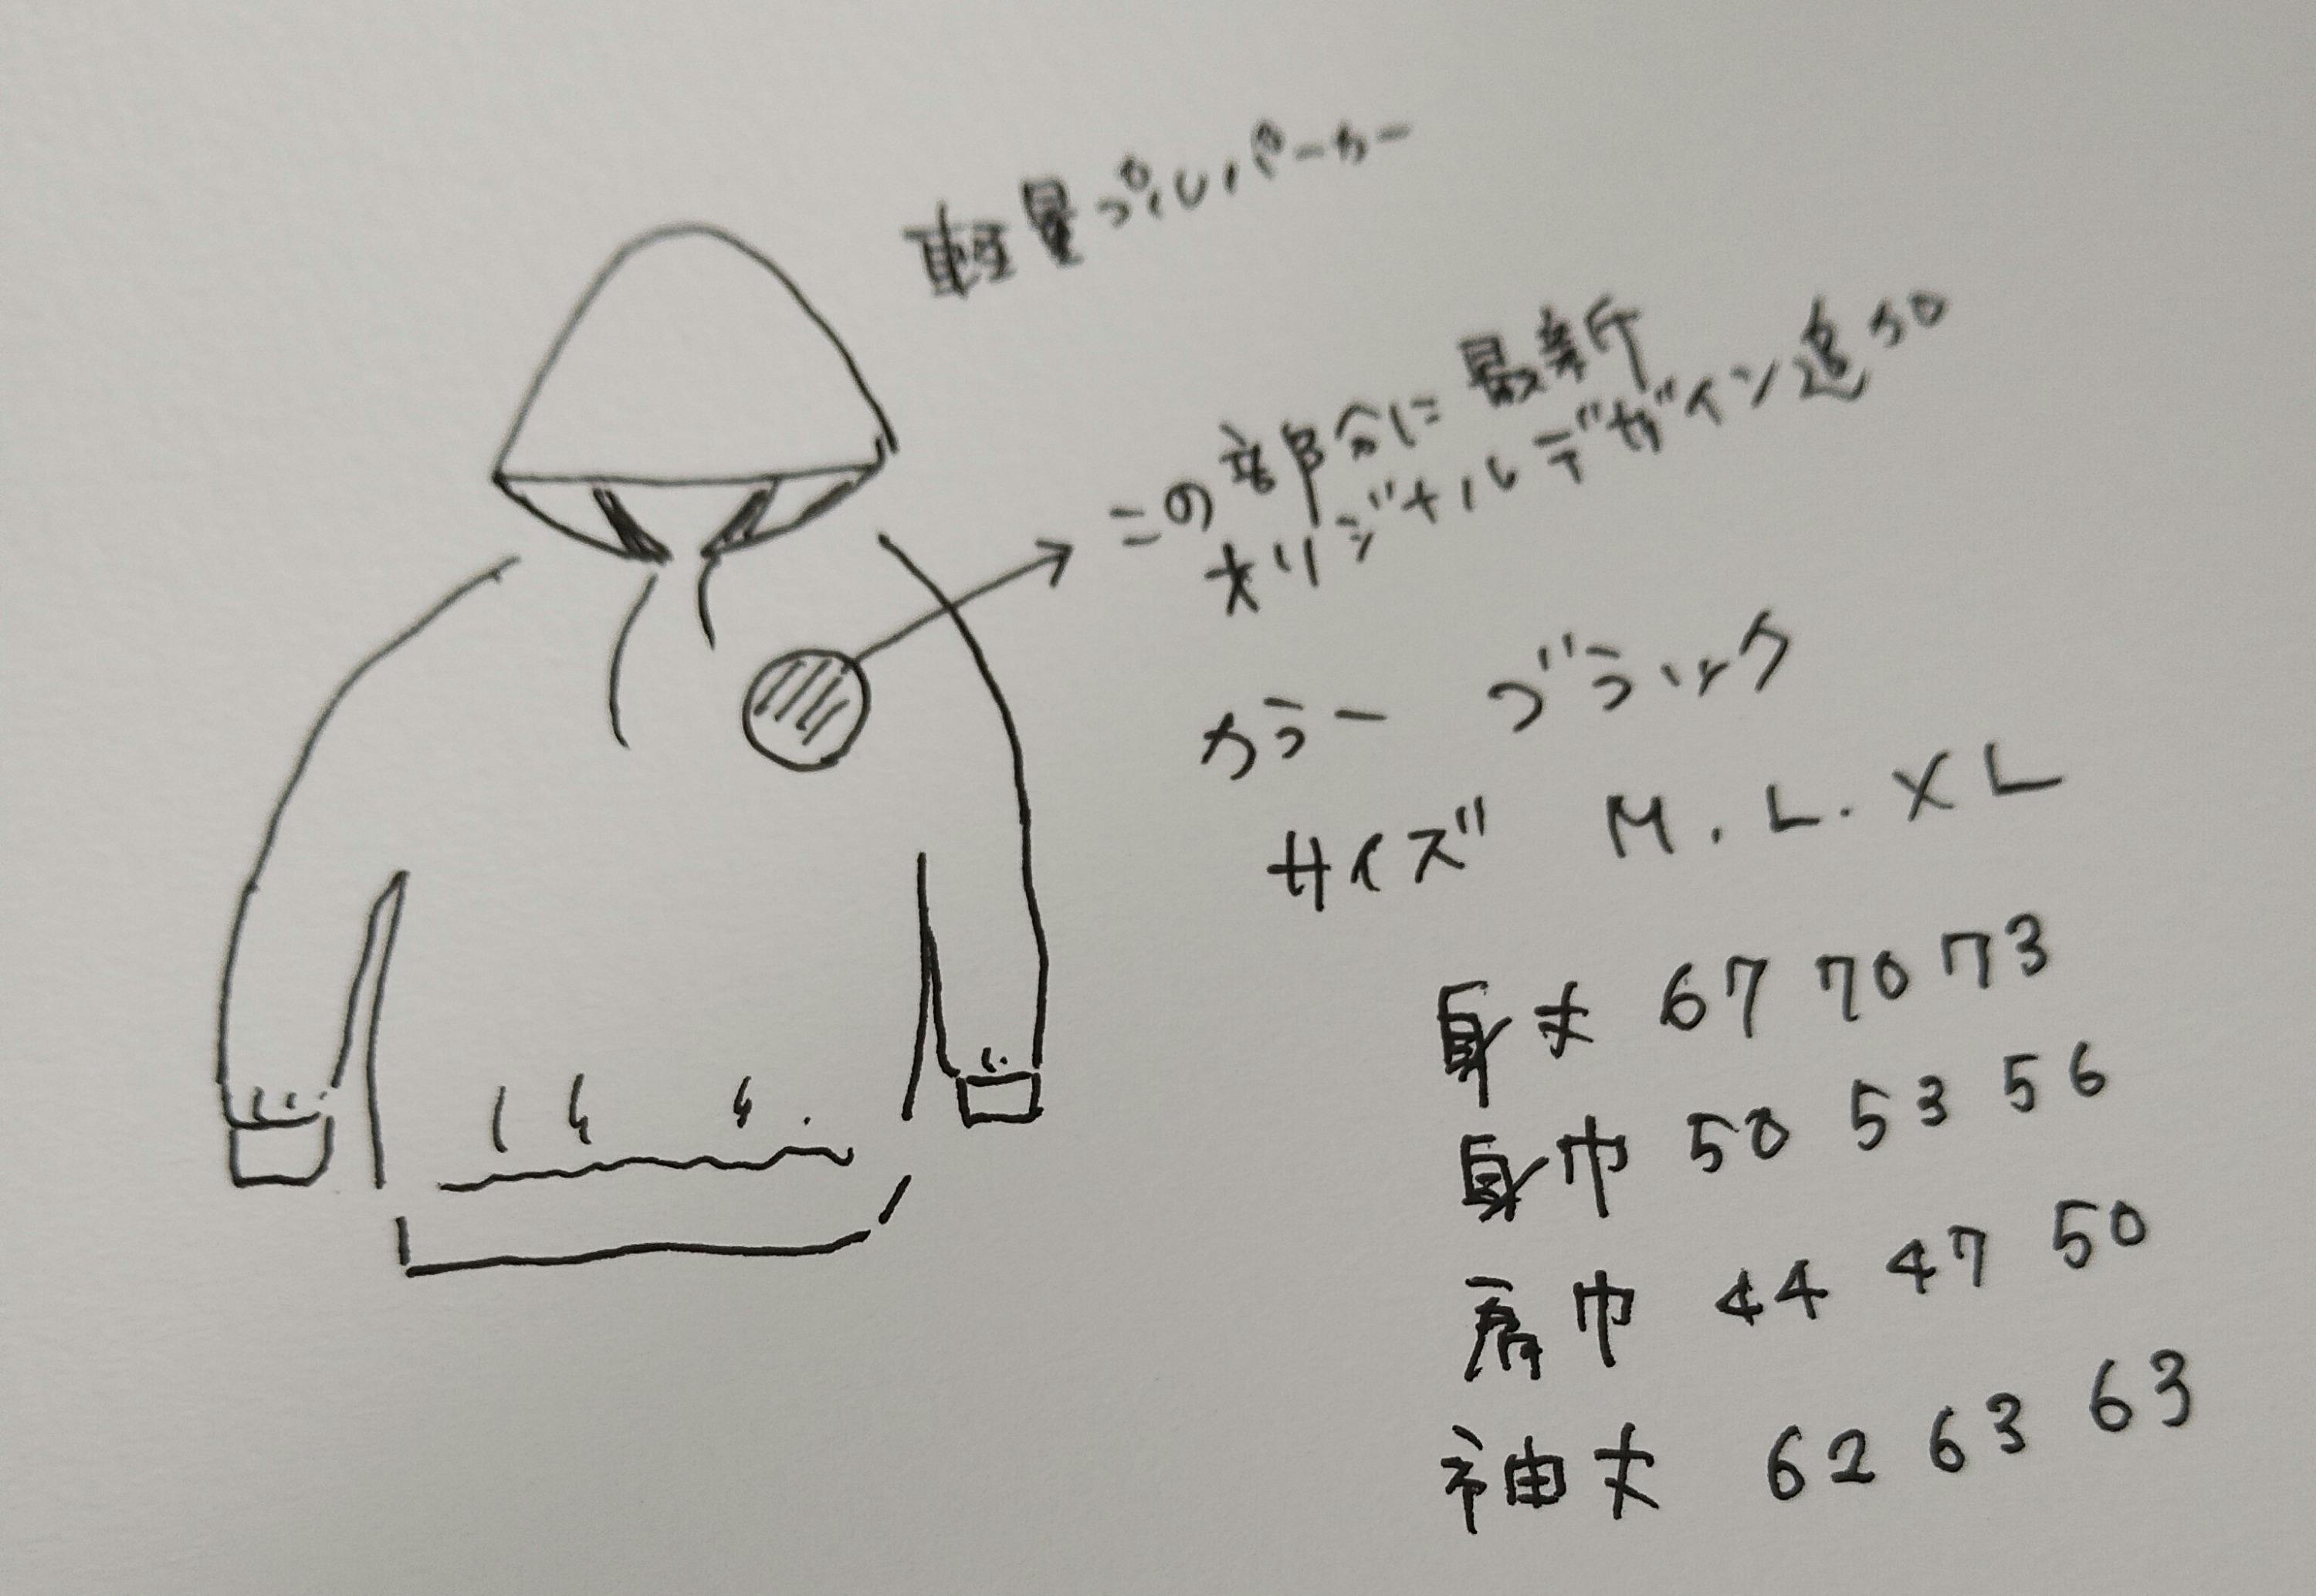 軽量プルパーカー
この部分に最新
オリジナルデザイン追加
カラー ブラック
サイズ M.L.XL
身丈 67 70 73
身巾 50 53 56
肩巾 44 47 50
袖丈 62 63 63